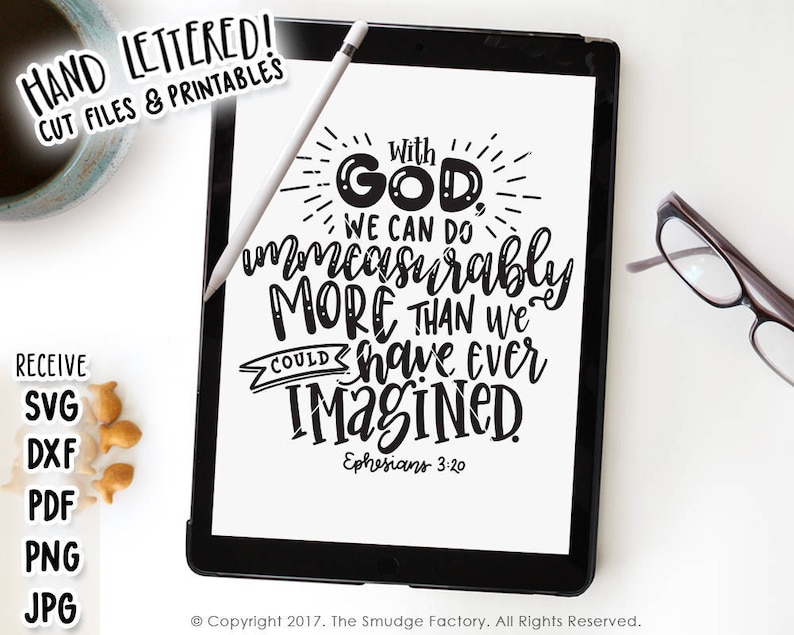 HAND LETTERED!
CUT FILES & PRINTABLES
With
GOD,
WE CAN DO
immeasurably
MORE THAN WE
COULD have EVER
IMAGINED.
Ephesians 3:20
RECEIVE
SVG
DXF
PDF
PNG
JPG
© Copyright 2017. The Smudge Factory. All Rights Reserved.